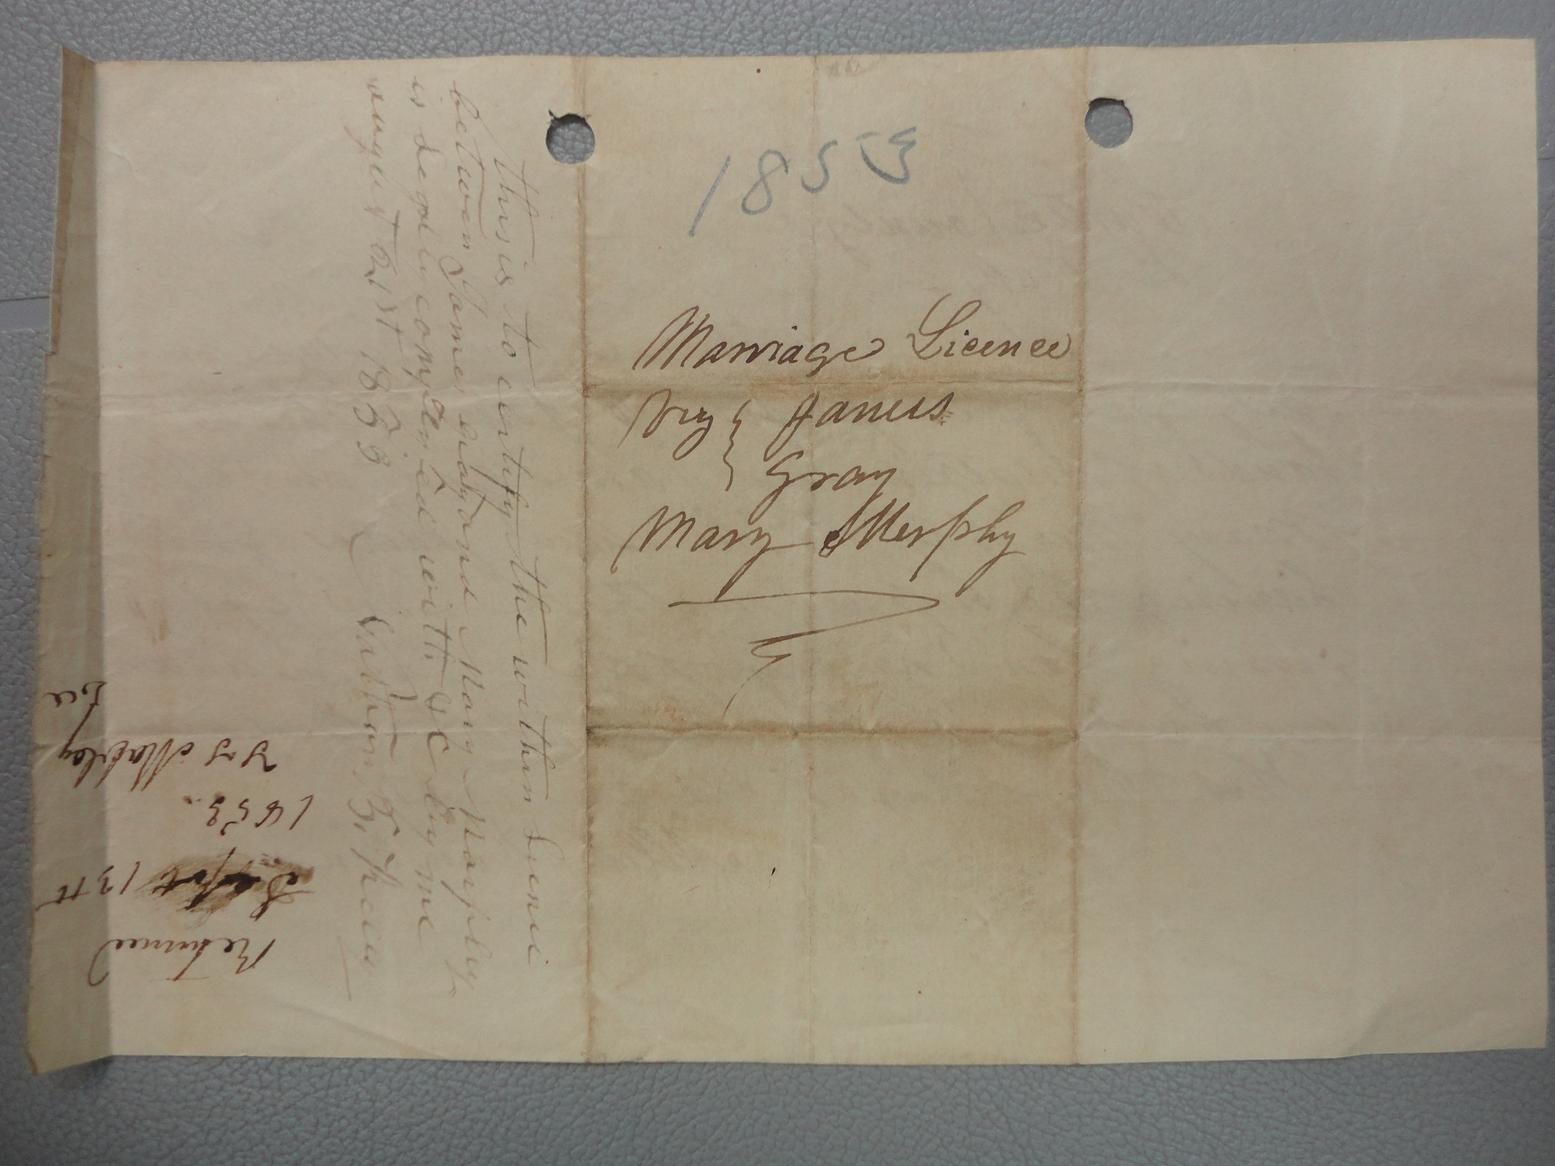 1853
Marriage Licence
Viz } James
Gray
Mary Murphy
this is to certify the within Licnce
between James and Mary Murphy
is legally complied with &c by me
august 21st 1853
Returned
Sept 13th
1853.